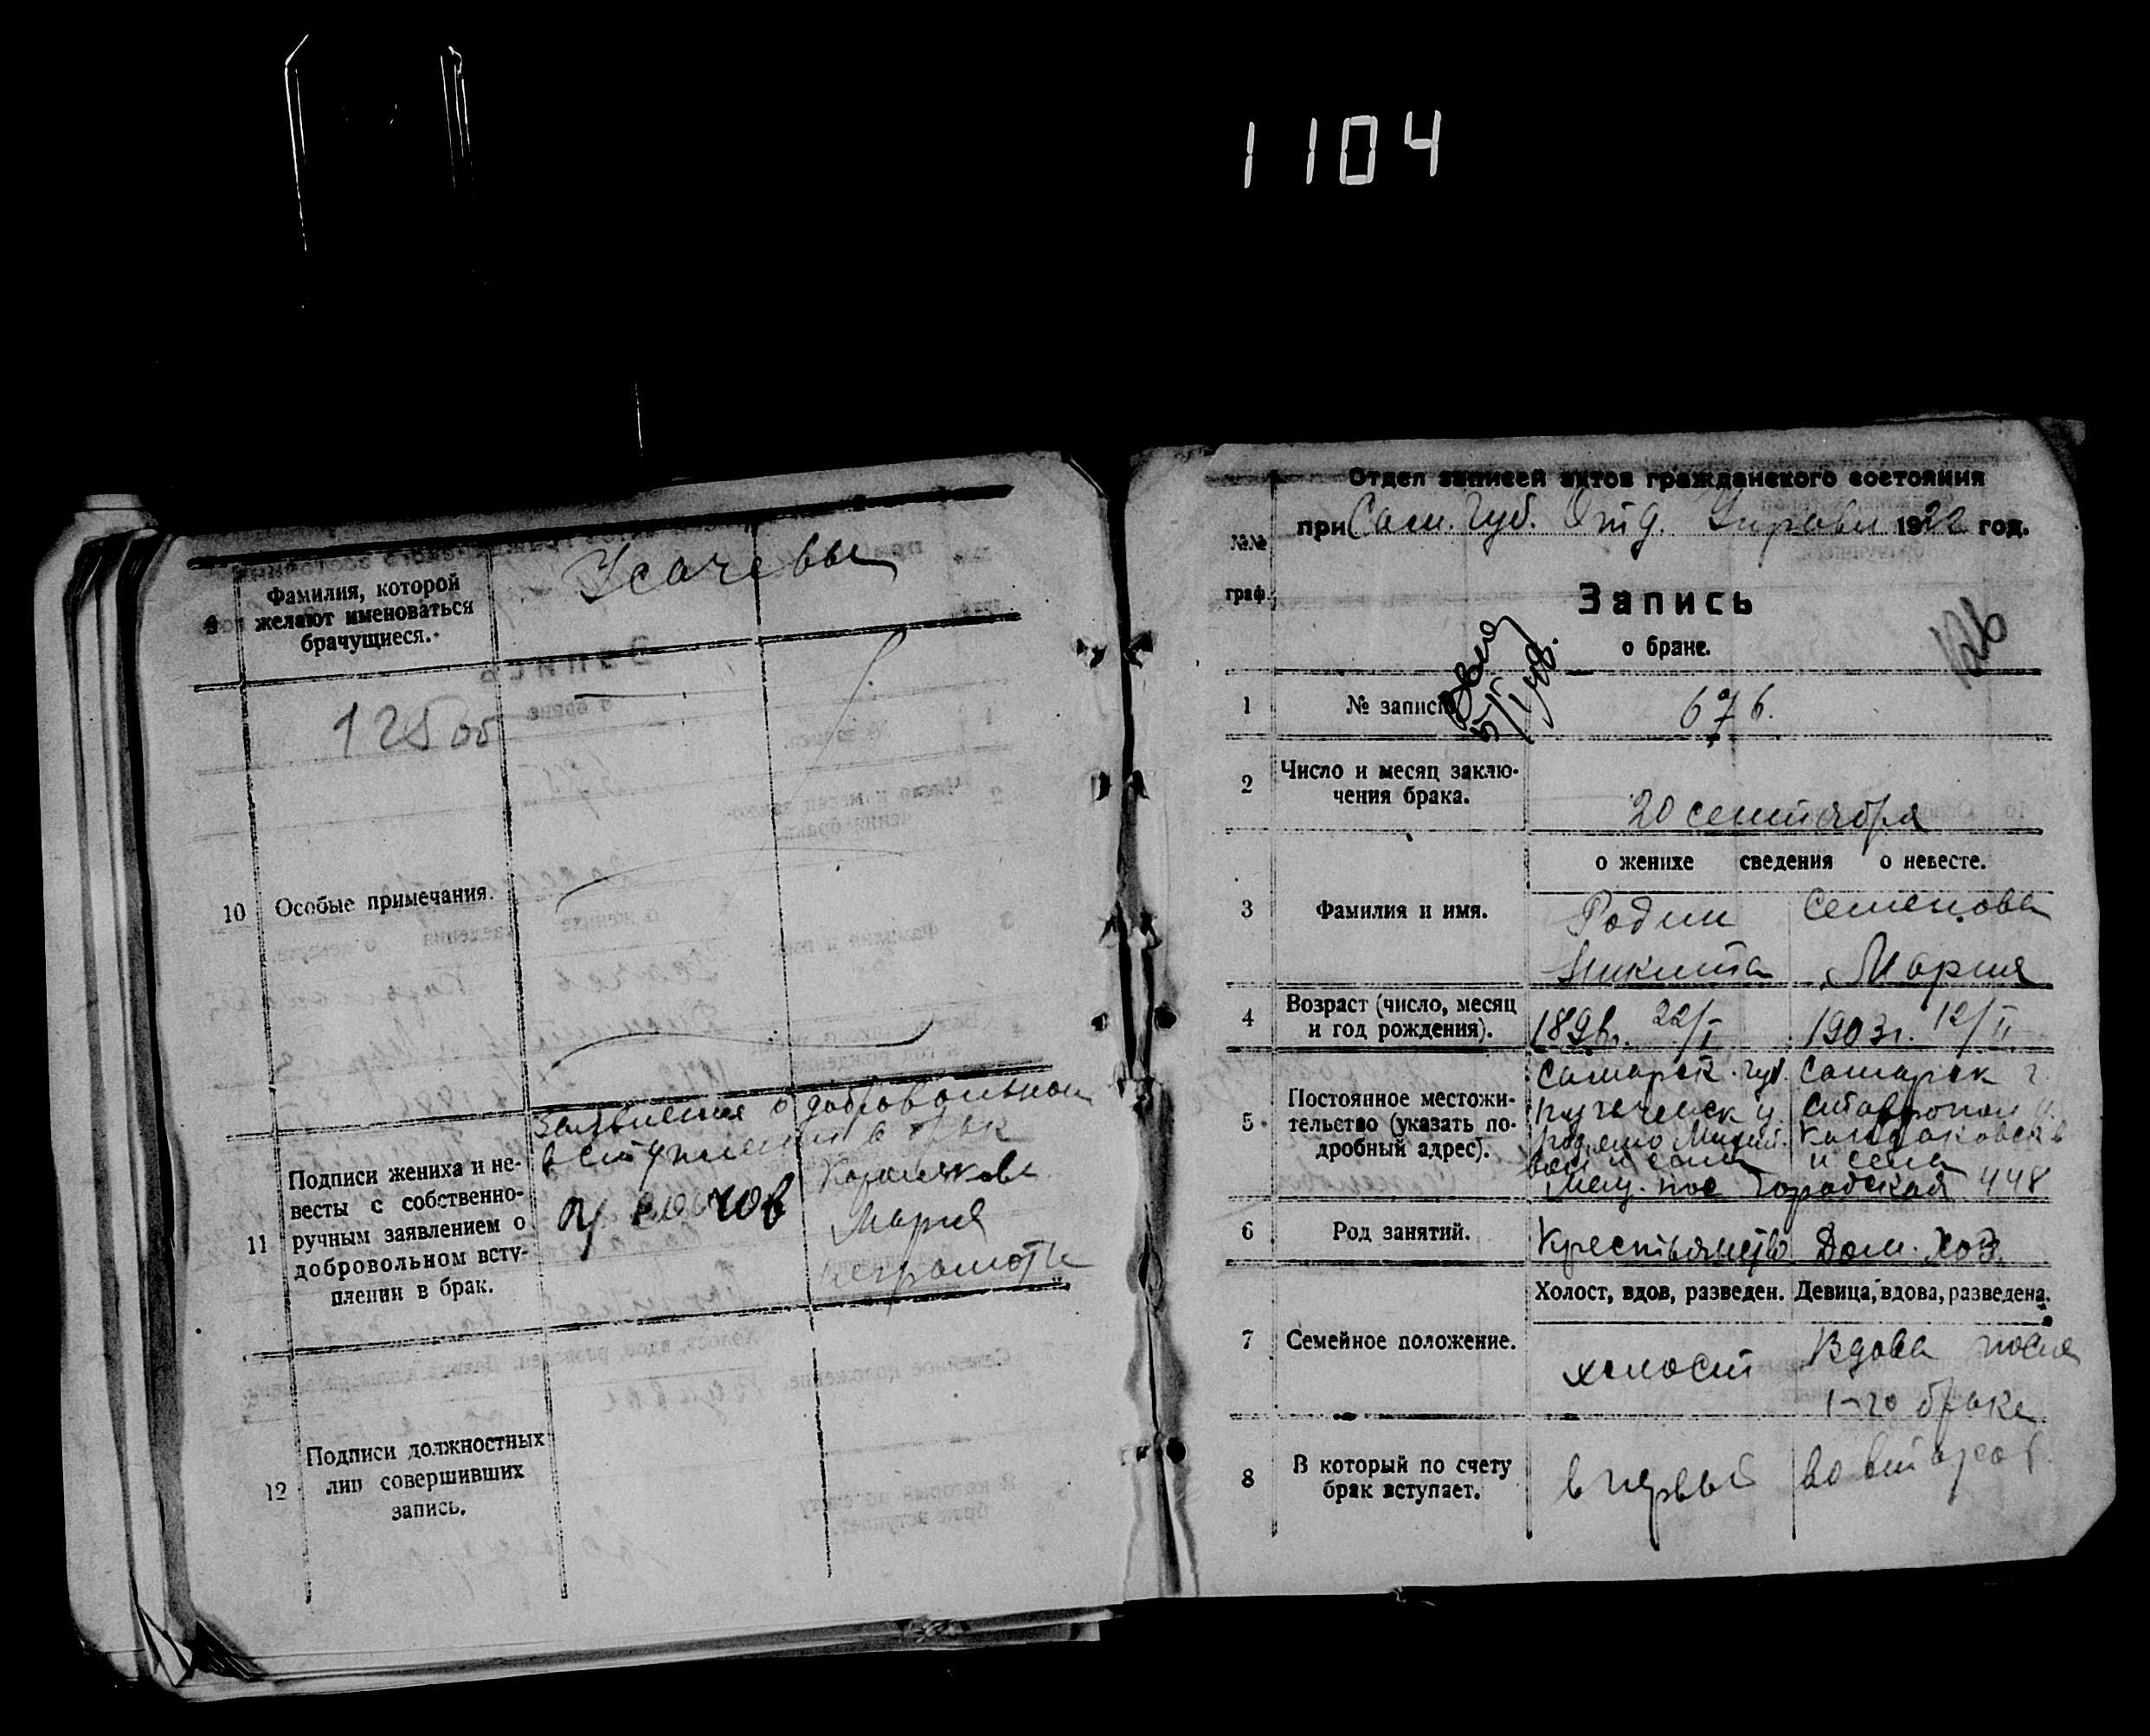 1104
9
Фамилия, которой
желают именоваться
брачущиеся.
Усачевы
12500
10
Особые примечания.
11
Подписи жениха и не-
весты с собственно-
ручным заявлением о
добровольном всту-
плении в брак.
Заявления о добровольном
вступлении в брак
Усачов
Карошкова
Мария
неграмотн
12
Подписи должностных
лиц совершивших
запись.
Отдел записей актов гражданского состояния
при Сам. Губ. Отд. Управл 1922 год.
№№
граф.
Запись
о браке.
126
1
№ записи
676.
2
Число и месяц заклю-
чения брака.
20 сентября
о женихе сведения о невесте.
3
Фамилия и имя.
Родин Семенова
Никита Мария
4
Возраст (число, месяц
и год рождения).
1896г. 22/I 1903г. 12/II
5
Постоянное местожи-
тельство (указать по-
дробный адрес).
Самарск. губ. Самарск г.
Пугачевск у Ставропол у.
и села
Мещ. пос Городская 448
6
Род занятий.
Крестьянство Дом. хоз.
Холост, вдов, разведен. Девица, вдова, разведена.
7
Семейное положение.
холост Вдова после
1-го брака
8
В который по счету
брак вступает.
в первый во второй